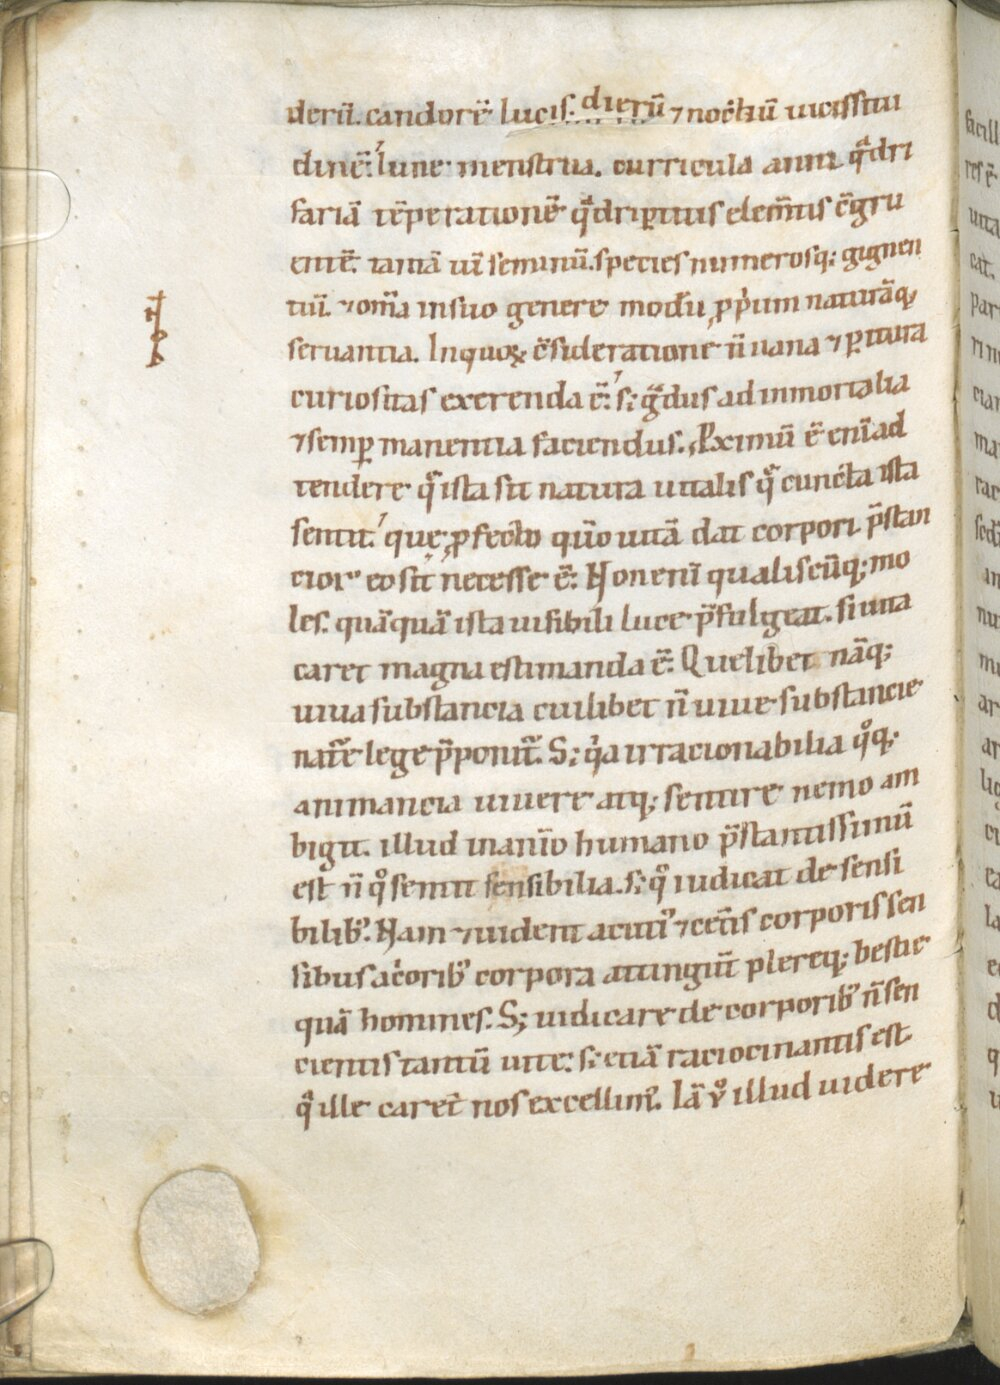 derū. candorē lucis. dierū ⁊ noctiū uicissitu
dinē. lune menstrua. curricula anni qͣdri
fariā tēperationē qͣdriꝑtitis elem̄tis ꝯ̄gru
entē. tantā uī seminū. species numerosq; gignen
tiū. ⁊ om̄ia in suo genere modū ꝓp̓um naturāq;
seruantia. In quoꝝ c̄sideratione n̄ uana ⁊ ꝑitura
curiositas exercenda ē. s; gͣdus ad inmortalia
⁊ semꝑ manentia faciendus. Ꝓximū ē enī ad
tendere qͣ ista sit natura uitalis qͣ cuncta ista
sentit. que ꝓfecto qm̄ uitā dat corpori p̄stan
cior eo sit necesse ē. Non enī qualiscūq; mo
les. quāquā ista uisibili luce p̄fulgeat. si uita
caret magna estimanda ē. Quelibet nāq;
uiua substancia cuilibet n̄ uiue substancie
nat̄e lege p̄ponit᷑. S; q̓a irracionabilia qͦq;
animancia uiuere atq; sentire nemo am
bigit. illud in anīo humano p̄stantissimū
est n̄ qͦ sentit sensibilia. s; qͦ iudicat de sensi
bilib᷒. Nam ⁊ uident acuti᷒ ⁊ cet̄is corporis sen
sibus ac̓orib᷒ corpora attingūt plereq; bestie
quā homines. S; iudicare de corporib᷒ n̄ sen
cientis tantū uite. s; etiā raciocinantis est
qͣ ille carēt nos excellim᷒. Iā ůͦ illud uidere